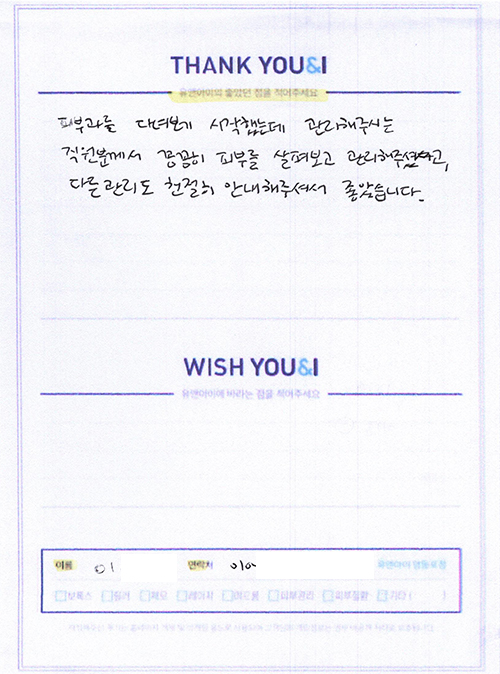 THANK YOU&I
유앤아이의 좋았던 점을 적어주세요
피부과를 다녀보게 시작했는데 관리해주시는
직원분께서 꼼꼼히 피부를 살펴보고 관리해주셨고,
다른관리도 친절히 안내해주셔서 좋았습니다.
WISH YOU&I
유앤아이에 바라는 점을 적어주세요
이름 이 연락처 010 유앤아이 명동점
보톡스 필러 제모 레이저 여드름 피부관리 피부질환 기타 ( )